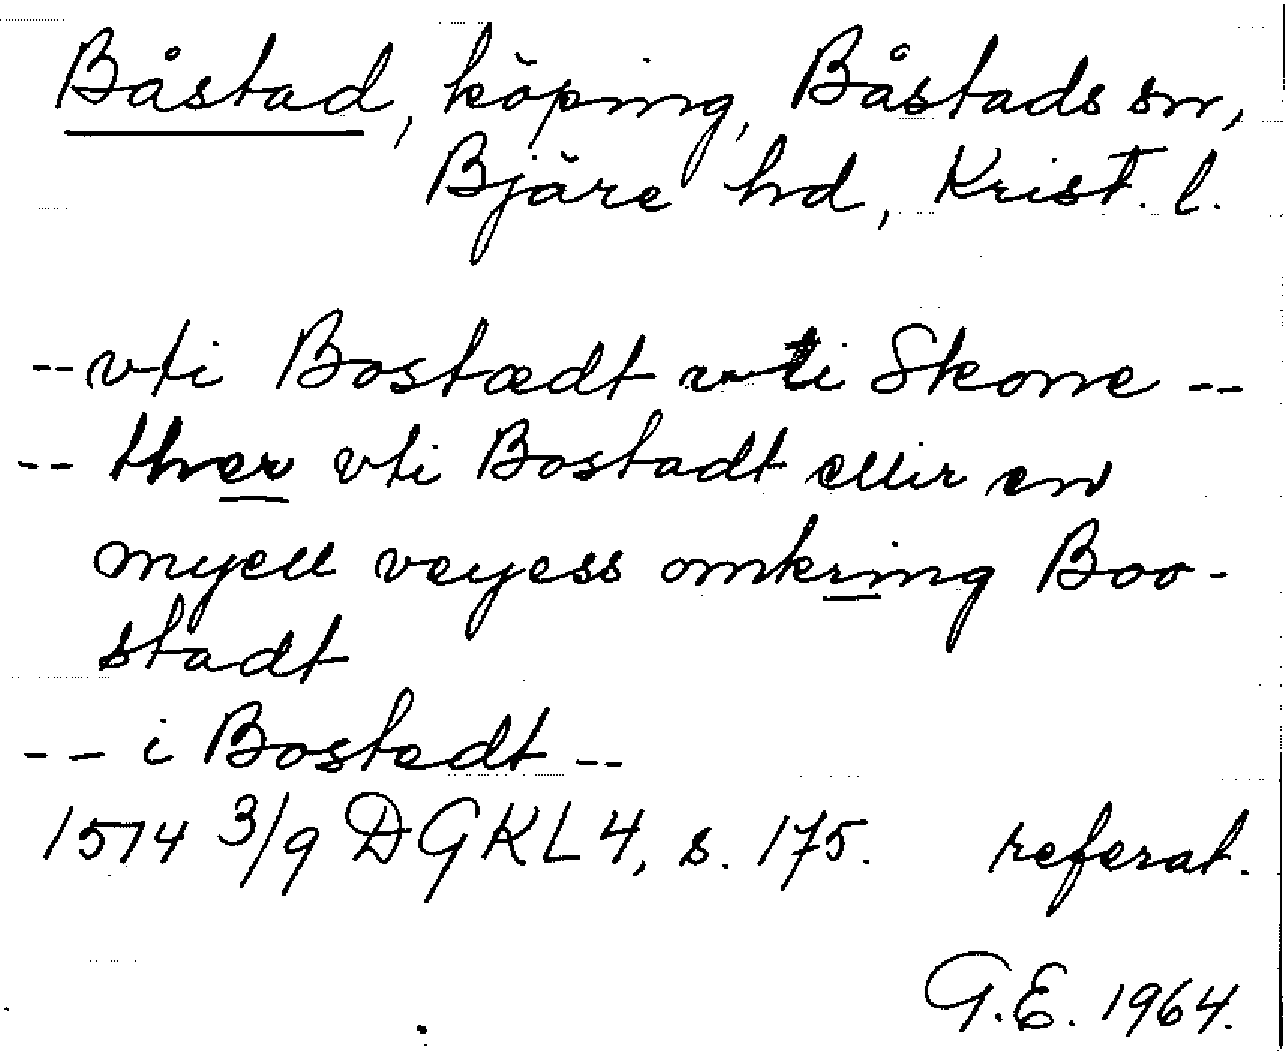 Båstad, köping, Båstads sn,
Bjäre hd, Krist. l.
-- vti Bostædt vti Skone --
-- ther vti Bostadt ellir en
myell veyess omkring Boo-
stadt
-- i Bostedt --
1574 3/9 DGKL 4, s. 175. referat.
G.E. 1964.